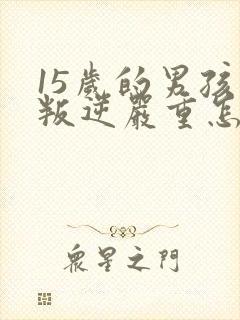 15歲的男孩
叛逆嚴重怎
眾星之門